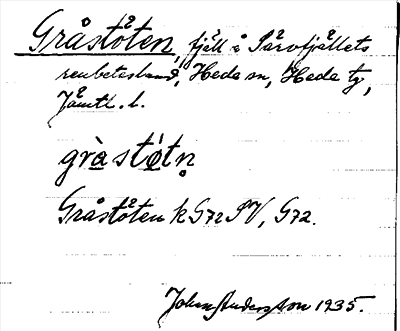 Gråstöten, fjäll å Särvfjällets
renbetesland, Hede sn, Hede tg,
Jämtl. l.
gràstö́tn̥
Gråstöten k G72 SV, G72.
John Andersson 1935.